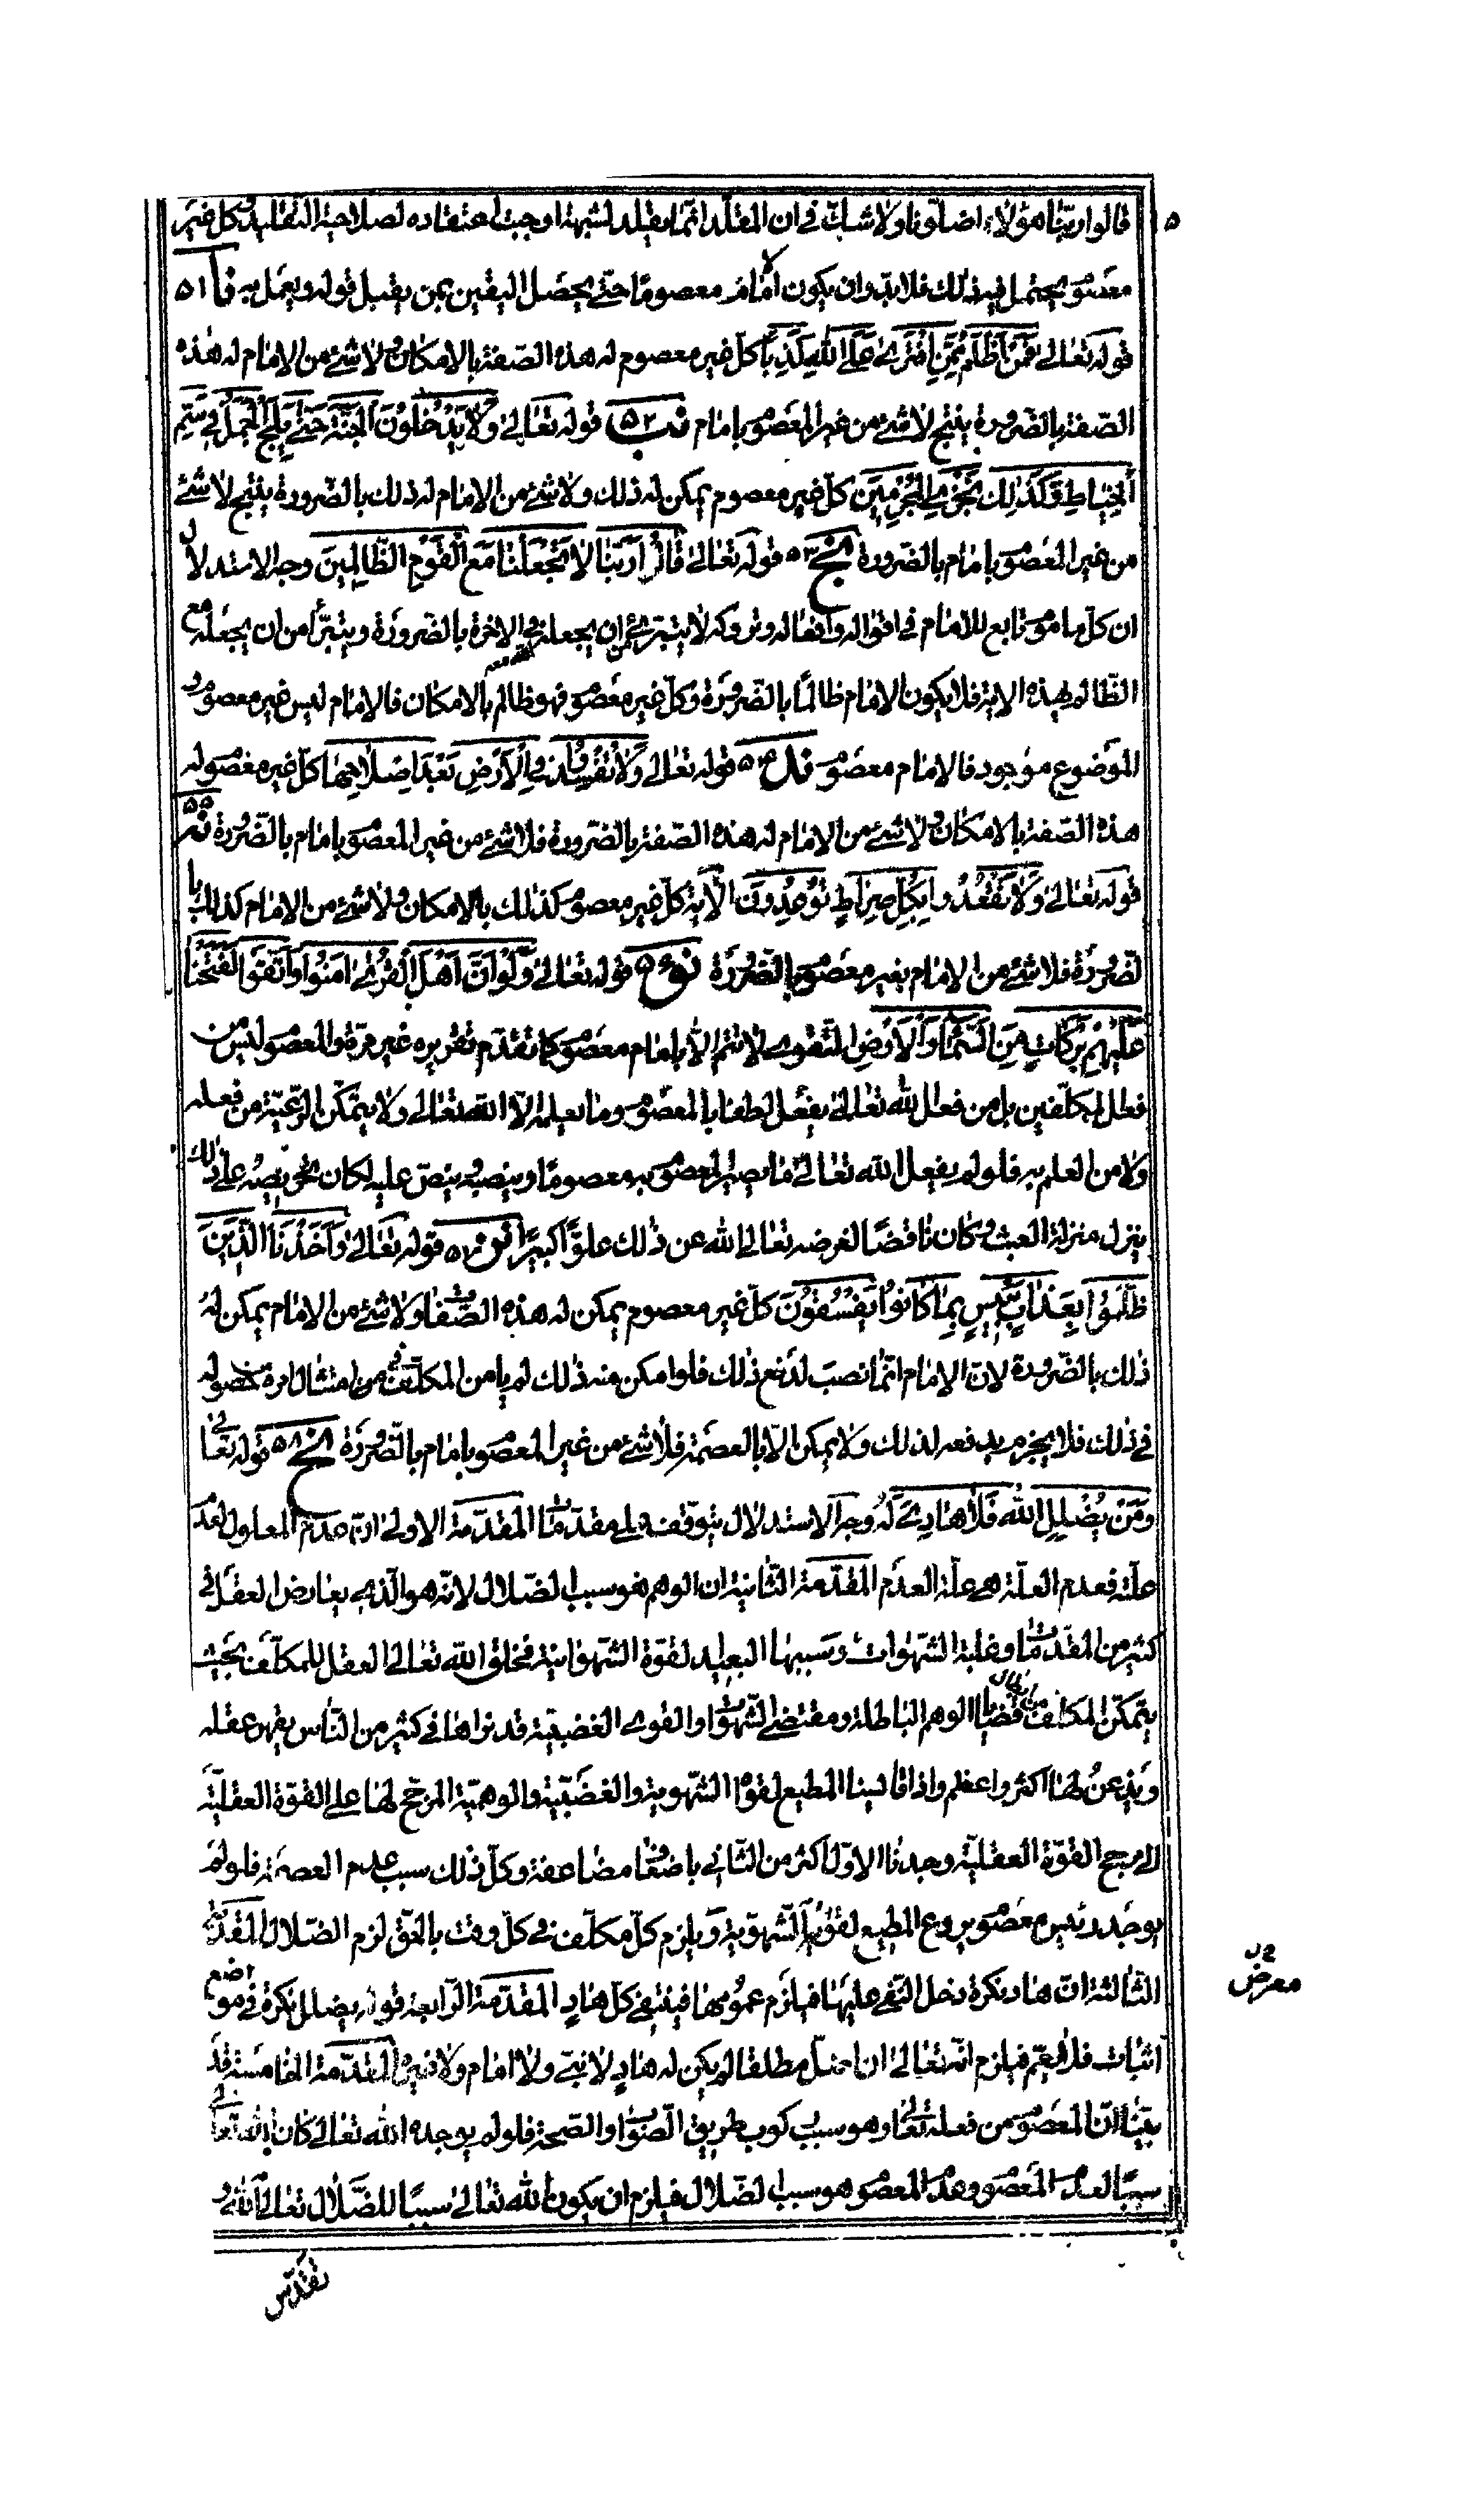 قالوا ربّنا هؤلاء اضلّونا ولا شكّ في ان المقلّد انّما يقلد لشبهة اوجبت اعتقاده لصلاحية التقليد وكل غير
معصوم يحتمل فيه ذلك فلا بدّ وان يكون امام معصومًا حتّى يحصل اليقين بمن يقبل قوله ويعمل به نا ۵۱
قوله تعالى فمن اظلم ممّن افترى على الله كذبًا كلّ غير معصوم له هذه الصّفة بالامكان ولا شئ من الامام له هذه
الصّفة بالضّرورة ينتج لا شئ من غير المعصوم بامام نب ۵۲ قوله تعالى ولا يدخلون الجنّة حتّى يلج الجمل في سمّ
الخياط وكذلك نجزي المجرمين كلّ غير معصوم يمكن له ذلك ولا شئ من الامام له ذلك بالضّرورة ينتج لا شئ
من غير المعصوم بامام بالضّرورة نج ۵۳ قوله تعالى قالوا ربّنا لا تجعلنا مع القوم الظّالمين وجه الاستدلال
ان كلّ ماموم تابع للامام في اقواله وافعاله وتروكه لا يتبرئ عمن ان يجعله في الاخرة بالضّرورة ويتبرّأ من ان يجعله مع
الظّالم لهذه الاية فلا يكون الامام ظالمًا بالضّرورة وكلّ غير معصوم فهو ظالم بالامكان فالامام ليس غير معصوم و
الموضوع موجود فالامام معصوم ند ۵۴ قوله تعالى ولا تفسدوا في الارض بعد اصلاحها كلّ غير معصوم له
هذه الصّفة بالامكان ولا شئ من الامام له هذه الصّفة بالضّرورة فلا شئ من غير المعصوم بامام بالضّرورة نه ۵۵
قوله تعالى ولا تقعدوا بكلّ صراط توعدون الاية كلّ غير معصوم كذلك بالامكان ولا شئ من الامام كذلك با
لضّرورة فلا شئ من الامام بغير معصوم بالضّرورة نو ۵۶ قوله تعالى ولو انّ اهل القرى امنوا واتّقوا لفتحنا
عليهم بركات من السّماء والارض التّقوى لا تتم الّا بامام معصوم كما تقدّم تقريره غير مرّة والمعصوم ليس من
فعل المكلّفين بل من فعل الله تعالى يفعل لطفا بالمعصوم وما يعلمه الّا الله تعالى ولا يتمكّن الرّعيّة من فعله
ولا من العلم به فلو لم يفعل الله تعالى ما يصير المعصوم به معصومًا وينصبه وينصّ عليه لكان تحريضه على ذلك
ينزل منزلة العبث وكان ناقضًا لغرضه تعالى الله عن ذلك علوًّا كبيرًا نز ۵۷ قوله تعالى واخذنا الّذين
ظلموا بعذاب بئيس بما كانوا يفسقون كلّ غير معصوم يمكن له هذه الصّفات ولا شئ من الامام يمكن له
ذلك بالضّرورة لانّ الامام انّما نصب لدفع ذلك فلو امكن منه ذلك لم يامن المكلّف في من امتثال امره حصوله
في ذلك فلا يجزم بدفعه لذلك ولا يمكن الّا بالعصمة فلا شئ من غير المعصوم بامام بالضّرورة نح ۵۸ قوله تعالى
ومن يضلل الله فلا هادي له وجه الاستدلال يتوقف على مقدّمات المقدّمة الاولى انّ عدم المعلول لعدم
علّته فعدم العلّة هي علّة العدم المقدّمة الثّانية ان الوهم هو سبب الضّلال لانّه هو الّذي يعارض العقل في
كثير من المقدّمات وغلبة الشّهوات وسببها البعيد لقوّة الشّهوانية فخلق الله تعالى العقل للمكلّف بحيث
يتمكّن المكلّف من ابطال قضايا الوهم الباطلة ومقتضى الشّهوات والقوى الغضبيّة قد نراها في كثير من النّاس يقهر عقله
ويذعن لها اكثر واعظم واذا قايسنا المطيع لقوا الشّهويّة والغضبيّة والوهميّة المرجّح لها على القوّة العقليّة
الى مرجح القوّة العقليّة وجدنا الاوّل اكثر من الثّاني باضعاف مضاعفة وكلّ ذلك سبب عدم العصمة فلو لم
يوجد رئيس معصوم يردع المطيع لقوّته الشّهويّة ويلزم كلّ مكلّف في كلّ وقت بالحقّ لزم الضّلال المقدّمة
الثّالثة انّ هاد نكرة دخل النّفي عليها فيلزم عمومها فينتفي كلّ هادٍ المقدّمة الرّابعة قوله يضلل نكرة في مواضع
معرض
اثبات فلا يعمّ فيلزم انّه تعالى ان اضلّ مطلقا لم يكن له هادٍ لا نبيّ ولا امام ولا غيره المقدّمة الخامسة قد
بيّنّا انّ المعصوم من فعله تعالى وهو سبب ركوب طريق الصّواب والصّحة فلو لم يوجده الله تعالى كان الله تعالى
سببًا لعدم المعصوم وعدم المعصوم هو سبب الضّلال فيلزم ان يكون الله تعالى سببًا للضّلال تعالى الله و
تقدّس